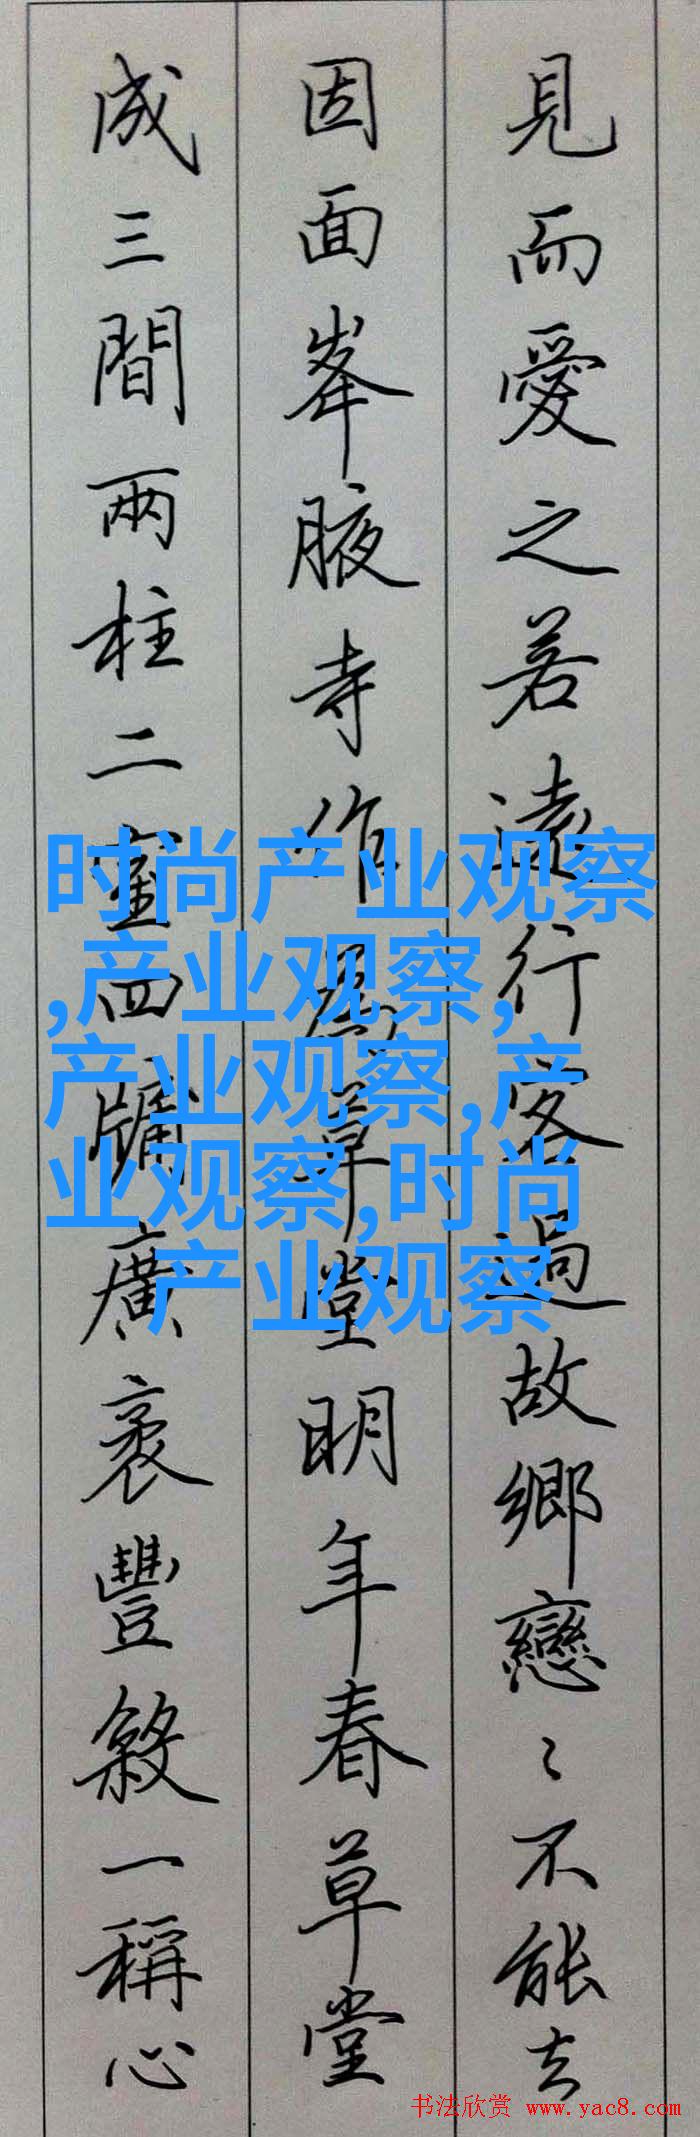 見而愛之若遠行客過故鄉戀〻不能去
因面峯腋寺作為草堂明年春草堂
成三間兩柱二室四牖廣袤豐殺一稱心
时尚产业观察
,产业观察,
产业观察,产
业观察,时尚
产业观察
书法欣赏 www.yac8.com